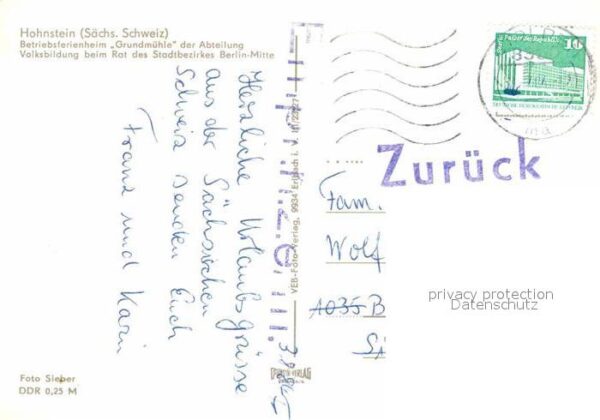 Hohnstein (Sächs. Schweiz)
Betriebsferienheim „Grundmühle" der Abteilung
Volksbildung beim Rat des Stadtbezirkes Berlin-Mitte
Herzliche Urlaubsgrüsse
aus der Sächsischen
Schweiz senden Euch
Franz und Karin
Foto Sieber
DDR 0,25 M
VEB-Foto-Verlag, 9934 Erlbach i. V.
10
Zurück
Fam.
Wolf
1035 B
privacy protection
Datenschutz